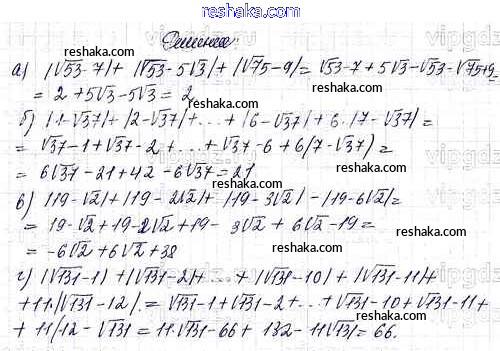 reshaka.com
Решение
reshaka.com
а) |√53-7|+ |√53-5√3|+|√75-9|=√53-7+5√3-√53-√75+9
= 2+5√3-5√3=2
reshaka.com
б) |1-√37|+|2-√37|+...+|6-√37|+6·|7-√37|=
= √37-1+√37-2+...+√37-6+6(7-√37)=
reshaka.com
= 6√37-21+42-6√37=21
reshaka.com
в) |19-√2|+|19-2√2|+|19-3√2|-|19-6√2|=
= 19-√2+19-2√2+19-3√2+6√2-19=
reshaka.com
= -6√2+6√2+38
reshaka.com
г) |√131-1|+|√131-2|+...+|√131-10|+|√131-11|+
+11·|√131-12|=√131-1+√131-2+...+√131-10+√131-11+
+11|12-√131=11·√131-66+132-11√131=66.
reshaka.com